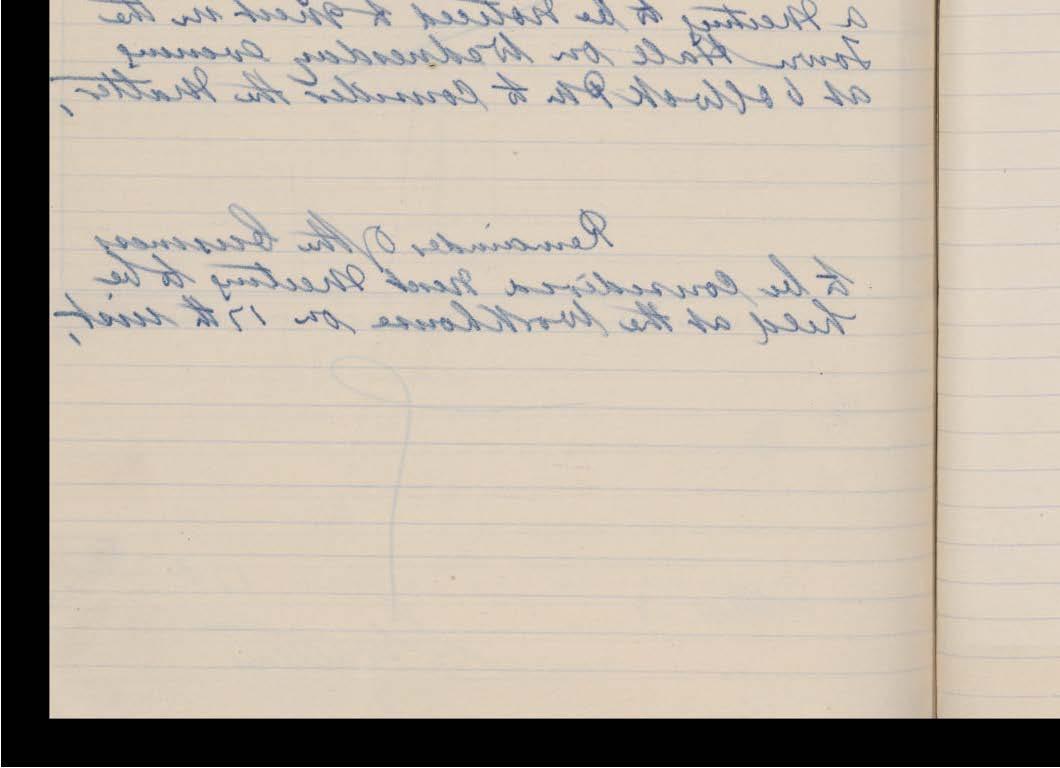 a Meeting to be Noticed to Meet in the
Town Hall on Wednesday evening
at 6 oClock Pm to Consider the Matter,
Remainder of the business
to be Considered next Meeting to be
held at the Workhouse on 17th inst,